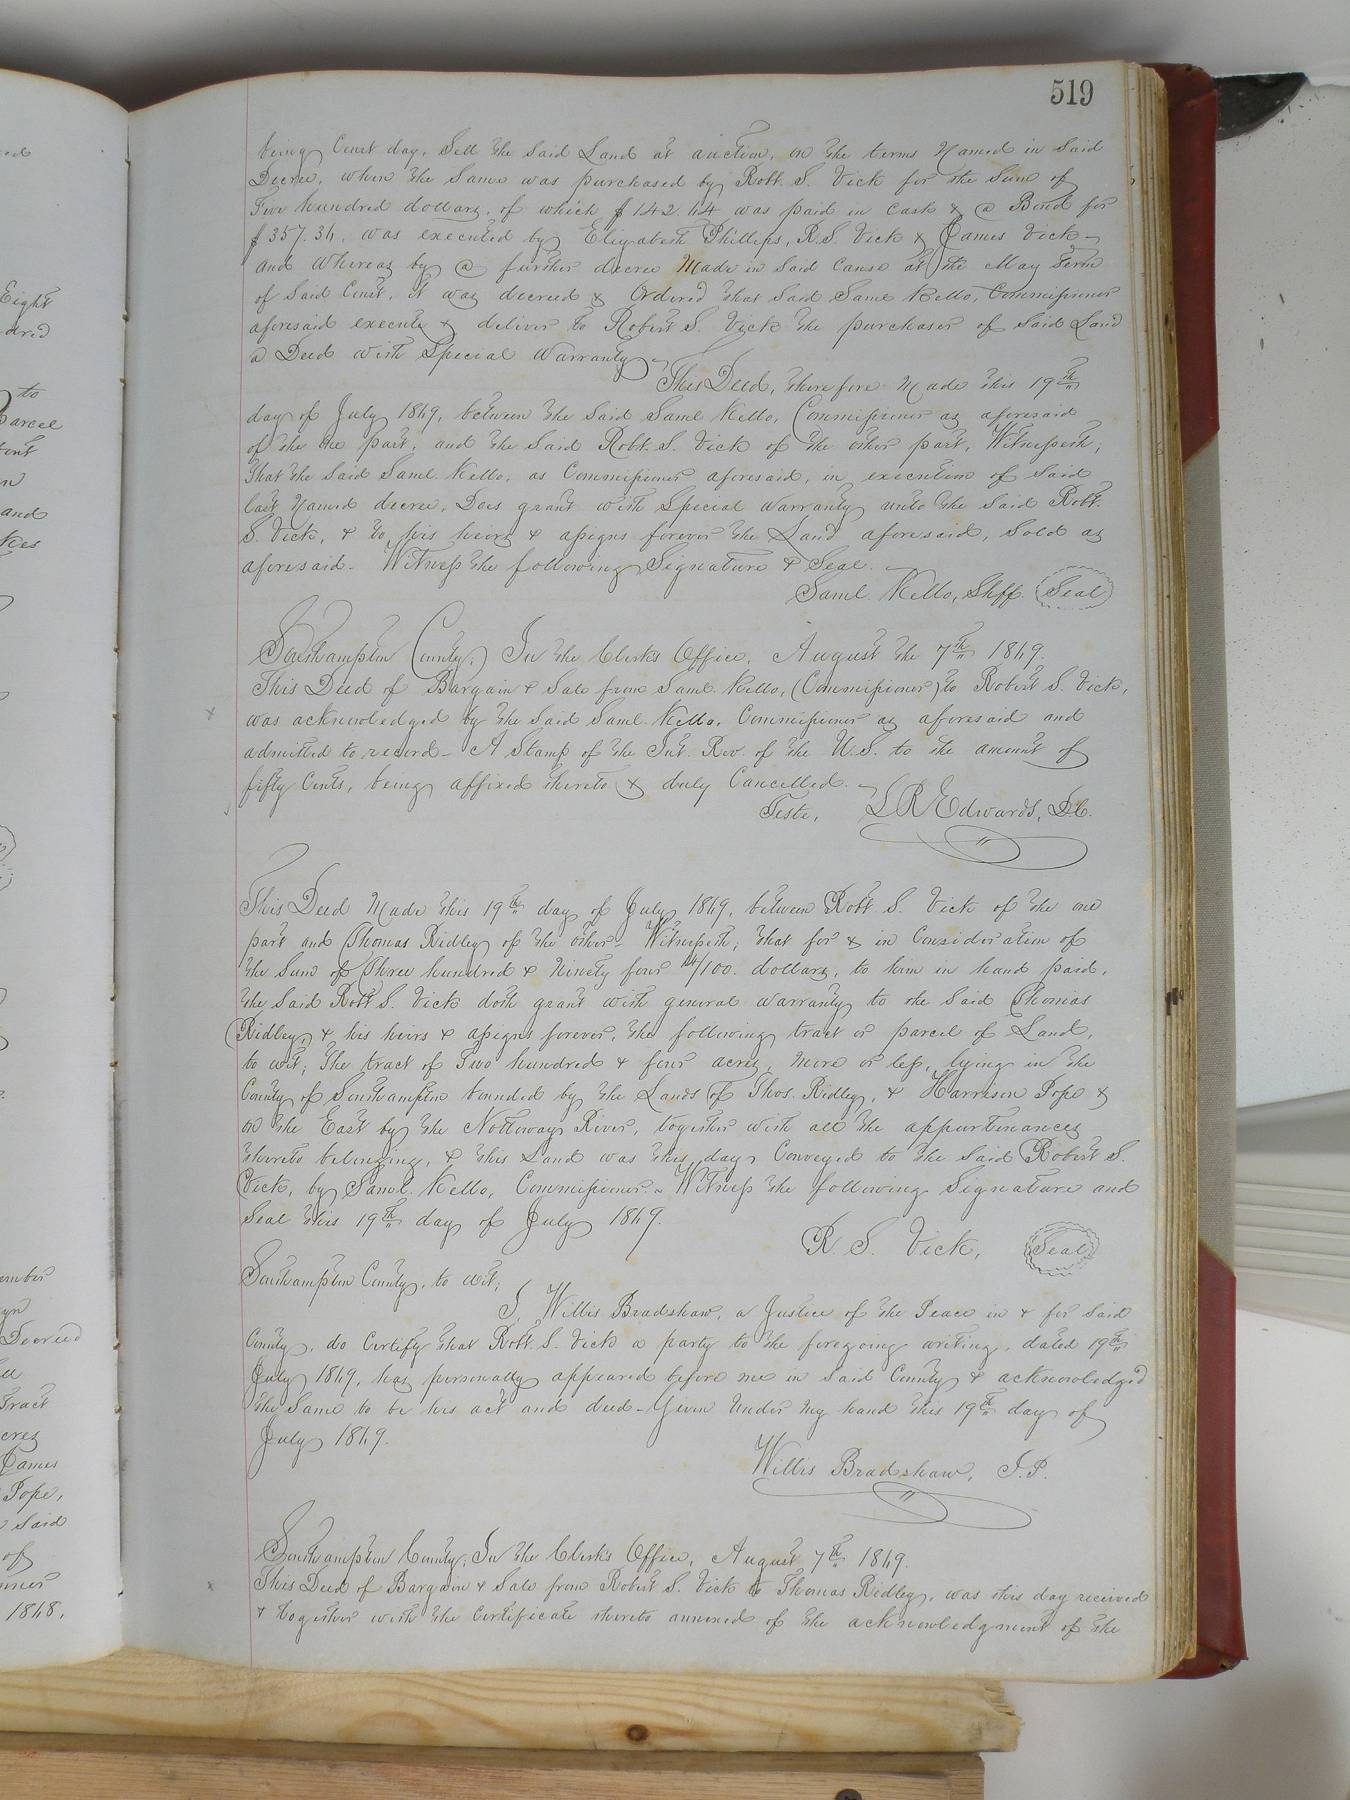 519
being Court day, Sell the Said Land at auction, on the terms Named in Said
Decree, when the Same was purchased by Robt. S. Vick for the Sum of
Five hundred dollars, of which $142.64 was paid in Cash & a Bond for
$357.36, was executed by Elizabeth Phillips, R.S. Vick & James Vick –
and Whereas by a further decree Made in Said Cause at the May Term
of Said Court, it was decreed & Ordered that Said Saml Kello, Commissioner
aforesaid execute & deliver to Robert S. Vick the purchaser of Said Land
a Deed with Special Warranty –
This Deed, therefore Made this 19th
day of July 1869, between the Said Saml Kello, Commissioner as aforesaid
of the one part, and the Said Robt. S. Vick of the other part, Witnesseth,
That the Said Saml Kello, as Commissioner aforesaid, in execution of Said
last Named decree, Does grant with Special Warranty unto the Said Robt.
S. Vick, & to his heirs & assigns forever the Land aforesaid, Sold as
aforesaid – Witness the following Signature & Seal. –
Saml. Kello, Shff. (Seal)
Southampton County;) In the Clerk's Office, August the 7th 1869.
This Deed of Bargain & Sale from Saml. Kello, (Commissioner) to Robert S. Vick,
was acknowledged by the Said Saml. Kello, Commissioner as aforesaid and
admitted to record – A Stamp of the Int. Rev. of the U.S. to the amount of
fifty Cents, being affixed thereto & duly Cancelled. –
Teste, L R Edwards, D.C.
This Deed Made this 19th day of July 1869, between Robt. S. Vick of the one
part and Thomas Ridley of the other – Witnesseth; that for & in Consideration of
the Sum of Three hundred & Ninety four /100. dollars, to him in hand paid,
the Said Robt S. Vick doth grant with general warranty to the Said Thomas
Ridley, & his heirs & assigns forever, the following tract or parcel of Land,
to wit; The tract of Two hundred & four acres, More or less, lying in the
County of Southampton bounded by the Lands of Thos. Ridley, & Harrison Pope &
on the East by the Nottoway River, together with all the appurtenances
thereto belonging, & this Land was this day Conveyed to the Said Robert S.
Vick, by Saml. Kello, Commissioner. – Witness the following Signature and
Seal this 19th day of July 1869.
R. S. Vick, (Seal)
Southampton County, to wit;
I, Willis Bradshaw, a Justice of the Peace in & for Said
County, do Certify that Robt. S. Vick a party to the foregoing writing, dated 19th
July 1869, has personally appeared before me in Said County & acknowledged
the Same to be his act and deed – Given Under My hand this 19th day of
July 1869.
Willis Bradshaw, J.P.
Southampton County; In the Clerk's Office, August 7th 1869.
This Deed of Bargain & Sale from Robert S. Vick to Thomas Ridley, was this day received
& together with the Certificate thereto annexed of the acknowledgment of the